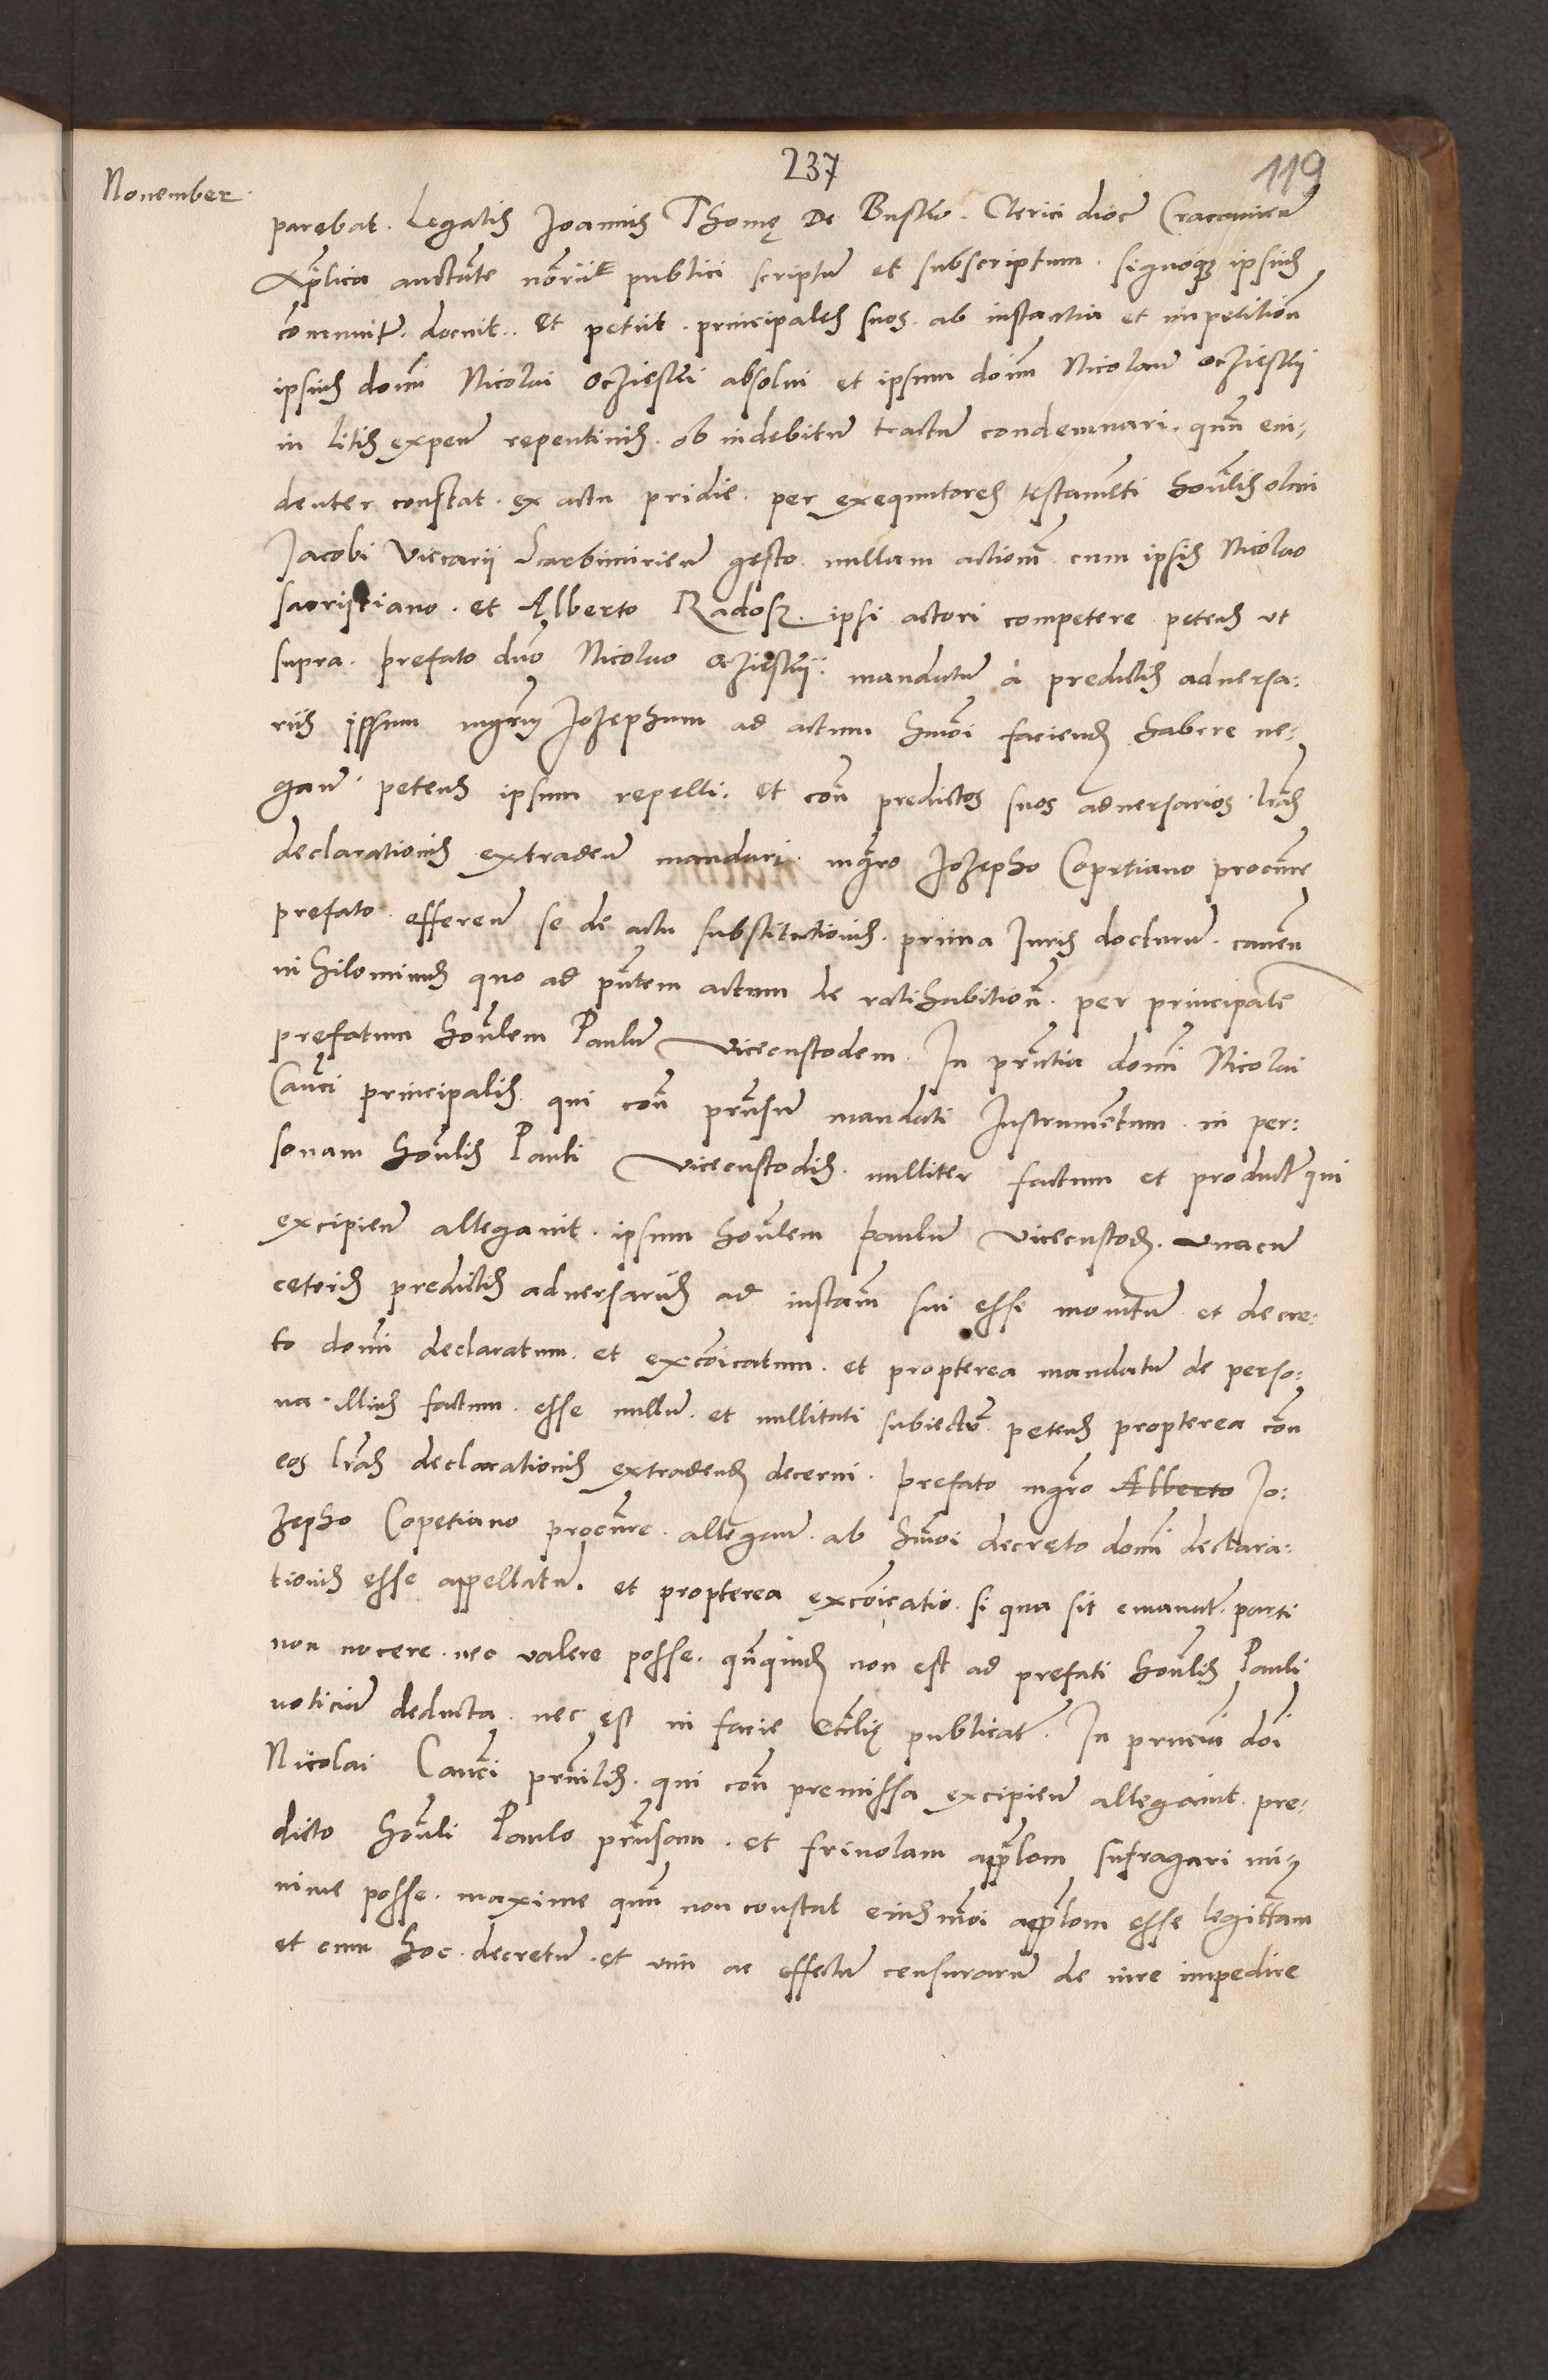 237
119
November
parebat. Legatis Joannis Thomę De Busko. Clerici dioc Cracovien
Aplica auctate norii publici scriptu et subscriptum. signoq ipsius
communit. docuit. Et petiit. principales suos. ab instantia et impetition
ipsius domi Nicolai Oczieskii absolui et ipsum doim Nicolau Oczieskii
in litis expen repentinis. ob indebitu tractu condemnari. qnn eui,
denter constat. ex actu pridie. per exequutores testamenti honlis olim
Jacobi Viccarii Scarbimirien gesto. nullam action cum ipsis Nicolao
sacristiano. et Alberto Radosz. ipsi actori competere petens vt
supra. Prefato dno Nicolao Oczieskii. mandatu à predictis aduersa:
riis ipsum mgrm Jozephum ad actum hmoi faciend habere ne,
gan. petens ipsum repelli. et con predictos suos aduersarios lras
declarationis extraden mandari. mgro Jozepho Copetiano procnre
prefato. efferen se de actu substitutionis. prima Juris docturu. cauen
nihilominus quo ad pntem actum de ratihabition. per principale
prefatum honlem Paulu Vicecustodem. In prntia domi Nicolai
Cauci principalis. qui con prnsu mandati Instrumentum. in per:
sonam honlis Pauli Vicecustodis. nulliter factum et product qui
excipien allegauit. ipsum honlem Paulu Vicecustod. vnacu
ceteris predictis aduersariis ad instam sui esse monitu et decre:
to domi declaratum. et excoicatum. et propterea mandatu de perso:
na illius factum. esse nullu. et nullitati subiectu petens propterea con
eos lras declarationis extradend decerni. Prefato mgro Alberto Jo:
zepho Copetiano procnre. allegan. ab hmoi decreto domi declara:
tionis esse appellatu. et propterea excoicatio. si qua sit emanat. parti
non nocere. nec valere posse. qnquid non est ad prefati honlis Pauli
noticiam deducta. nec est in facie Ecclię publicat. In prncia doi
Nicolai Cauci prnilis. qui con premissa excipien allegauit. pre,
dicto honli Paulo prnsam. et friuolam applom sufragari mi,
nime posse. maxime qnn non constat eiusmoi applom esse legittam
et cum hoc. decretu. et vim ac effectu censuraru de iure impedire